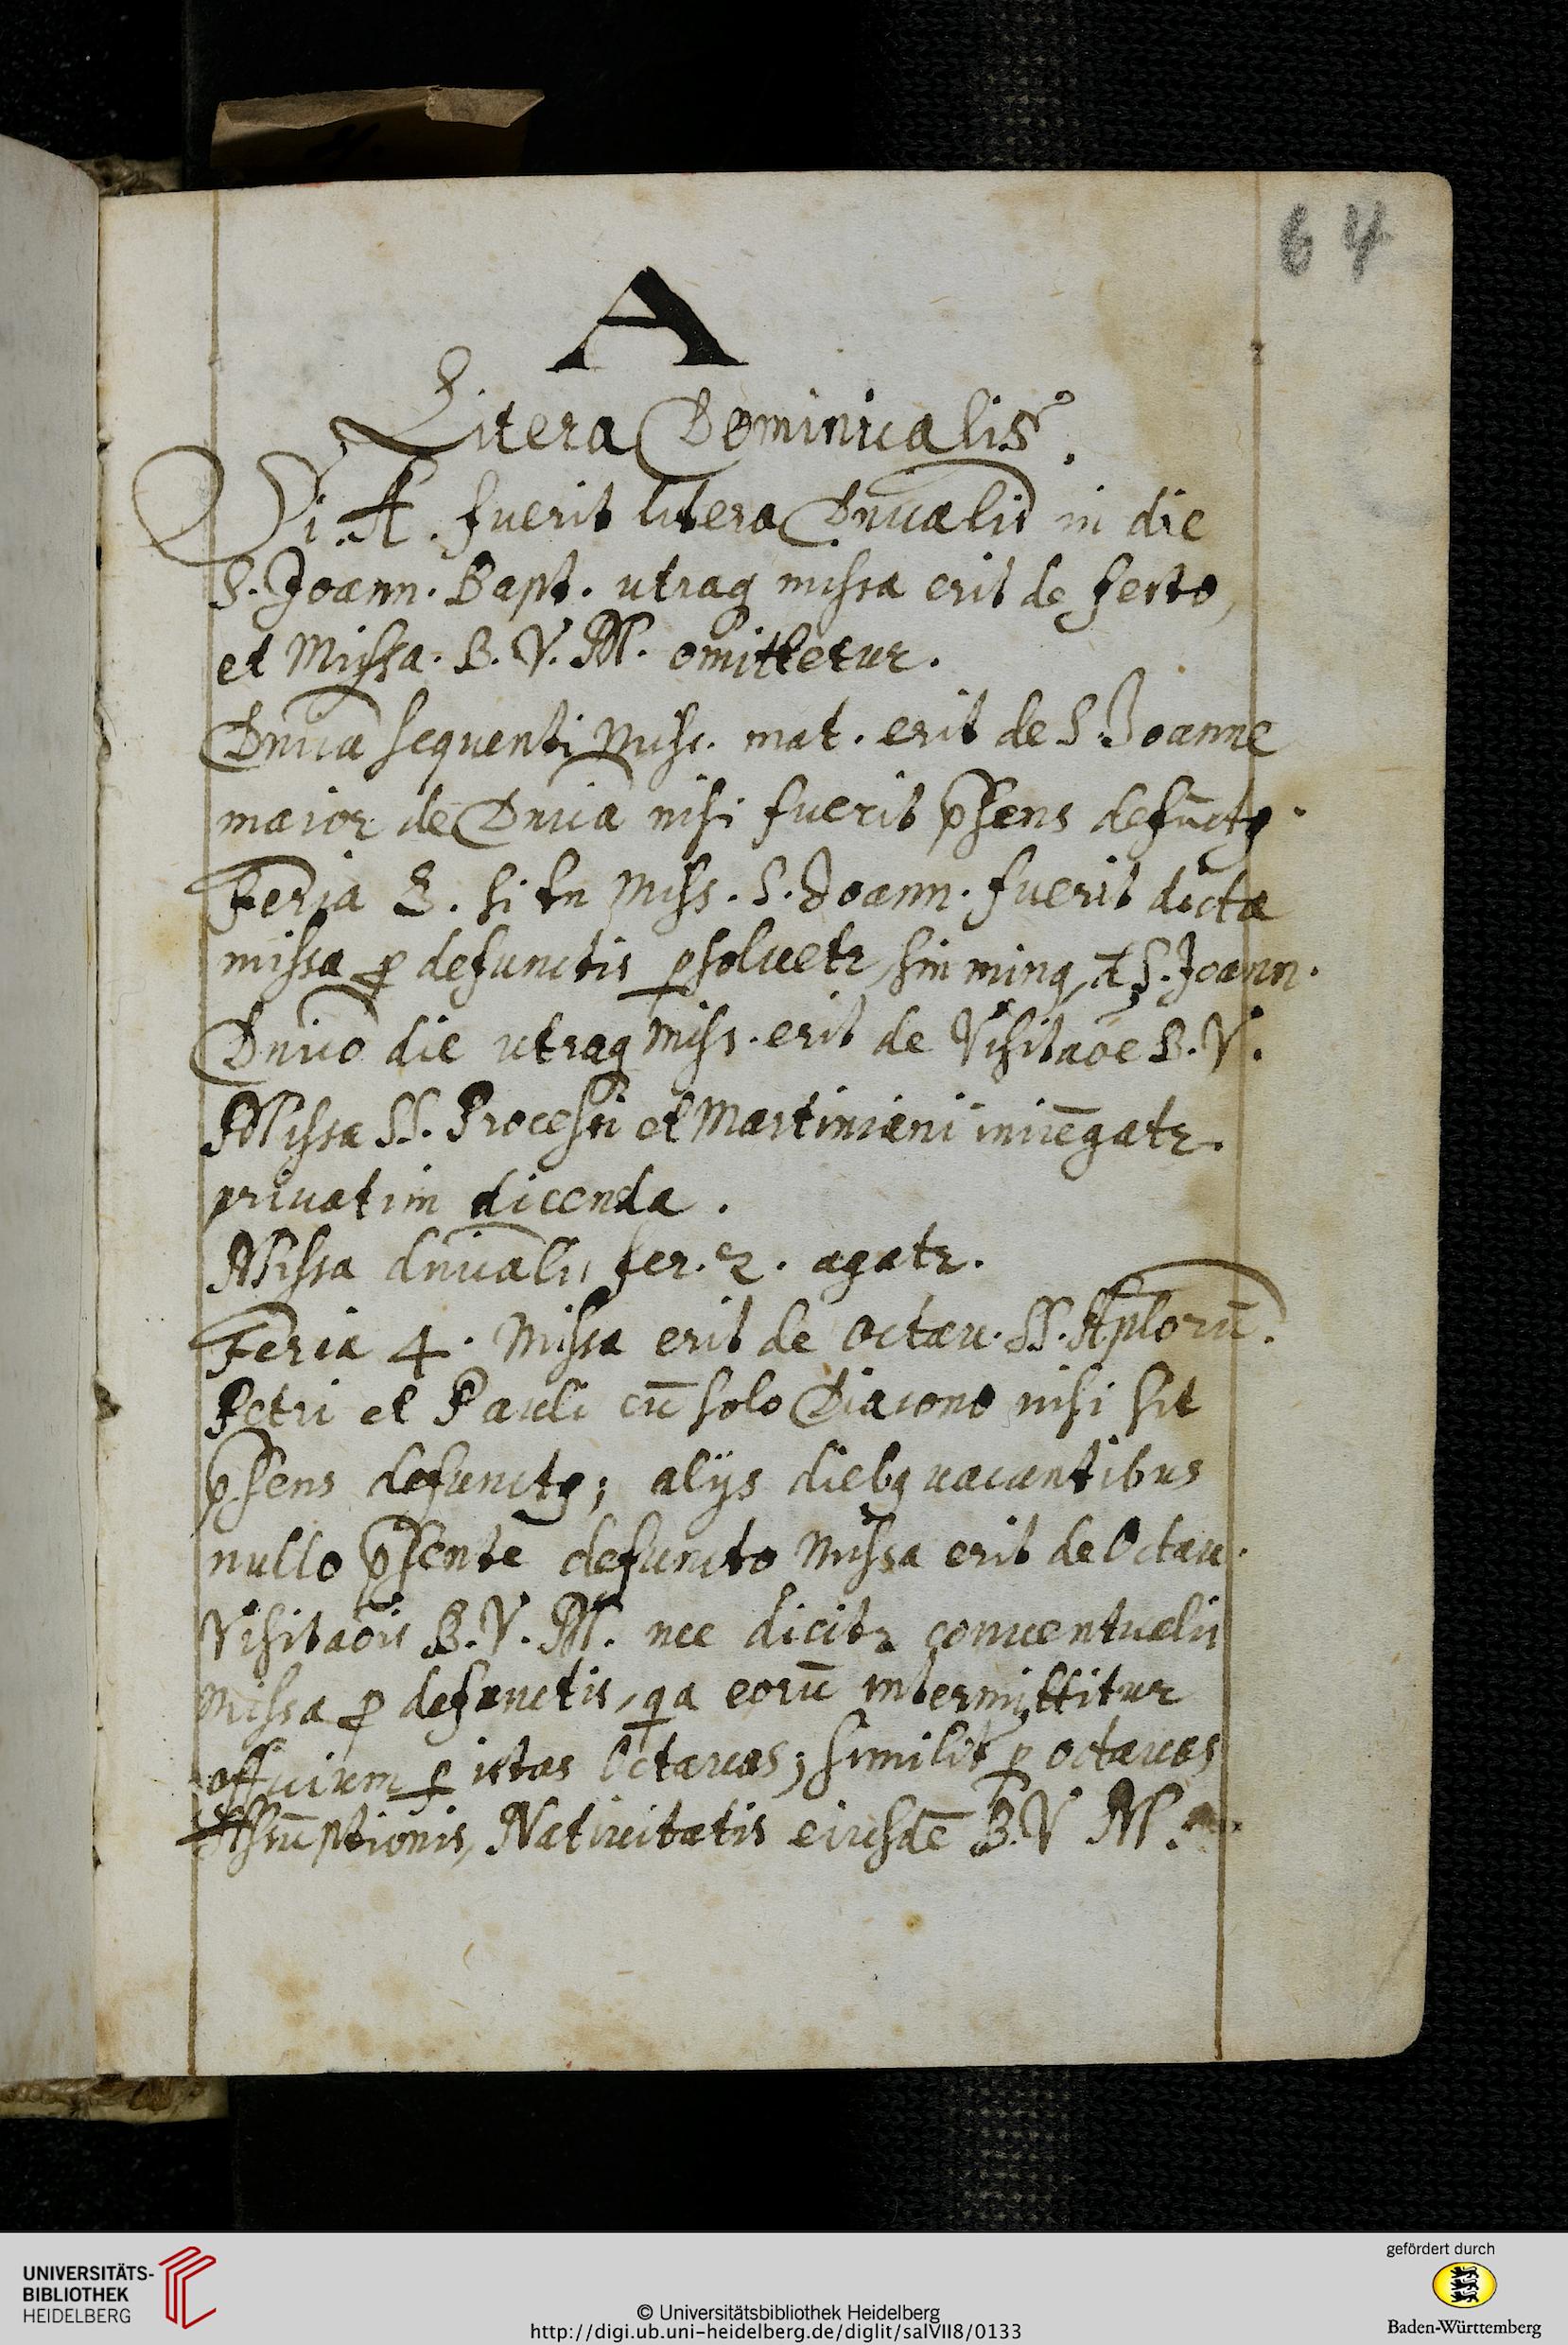 64
A
Litera Dominicalis.
Si .A. fuerit litera Dnicalis in die
S. Joann. Bapt. utraq missa erit de festo,
et Missa. B. V. M. omittetur.
Dnica sequenti Miss. mat. erit de S. Joanne
maior de Dnica nisi fuerit p̄sens defūctꝯ.
Feria 3. si tn Miss. S. Joann. fuerit dicta
missa ꝓ defunctis ꝑsoluetr, sin minꝯ, d̄ S. Joann.
Dnico die utraq Miss. erit de Visitaōe B. V.
Missa SS. Processi et Martiniani iniūgatr.
privatim dicenda.
Missa dnicalis fer. 2. agatr.
Feria 4. Missa erit de Octau. SS. Aplorū.
Petri et Pauli cū solo Diacono nisi sit
p̄sens defunctꝯ; alijs diebꝯ uacantibus
nullo p̄sente defuncto Missa erit de Octau.
Visitaōis B. V. M. nec dicitr conuentualis
Missa ꝓ defunctis, qa eorū intermittitur
officium ꝑ istas Octauas; similitr ꝑ octauas
Assūptionis, Natiuitatis eiusdē B. V M.
UNIVERSITÄTS-
BIBLIOTHEK
HEIDELBERG
© Universitätsbibliothek Heidelberg
http://digi.ub.uni-heidelberg.de/diglit/salVII8/0133
gefördert durch
Baden-Württemberg